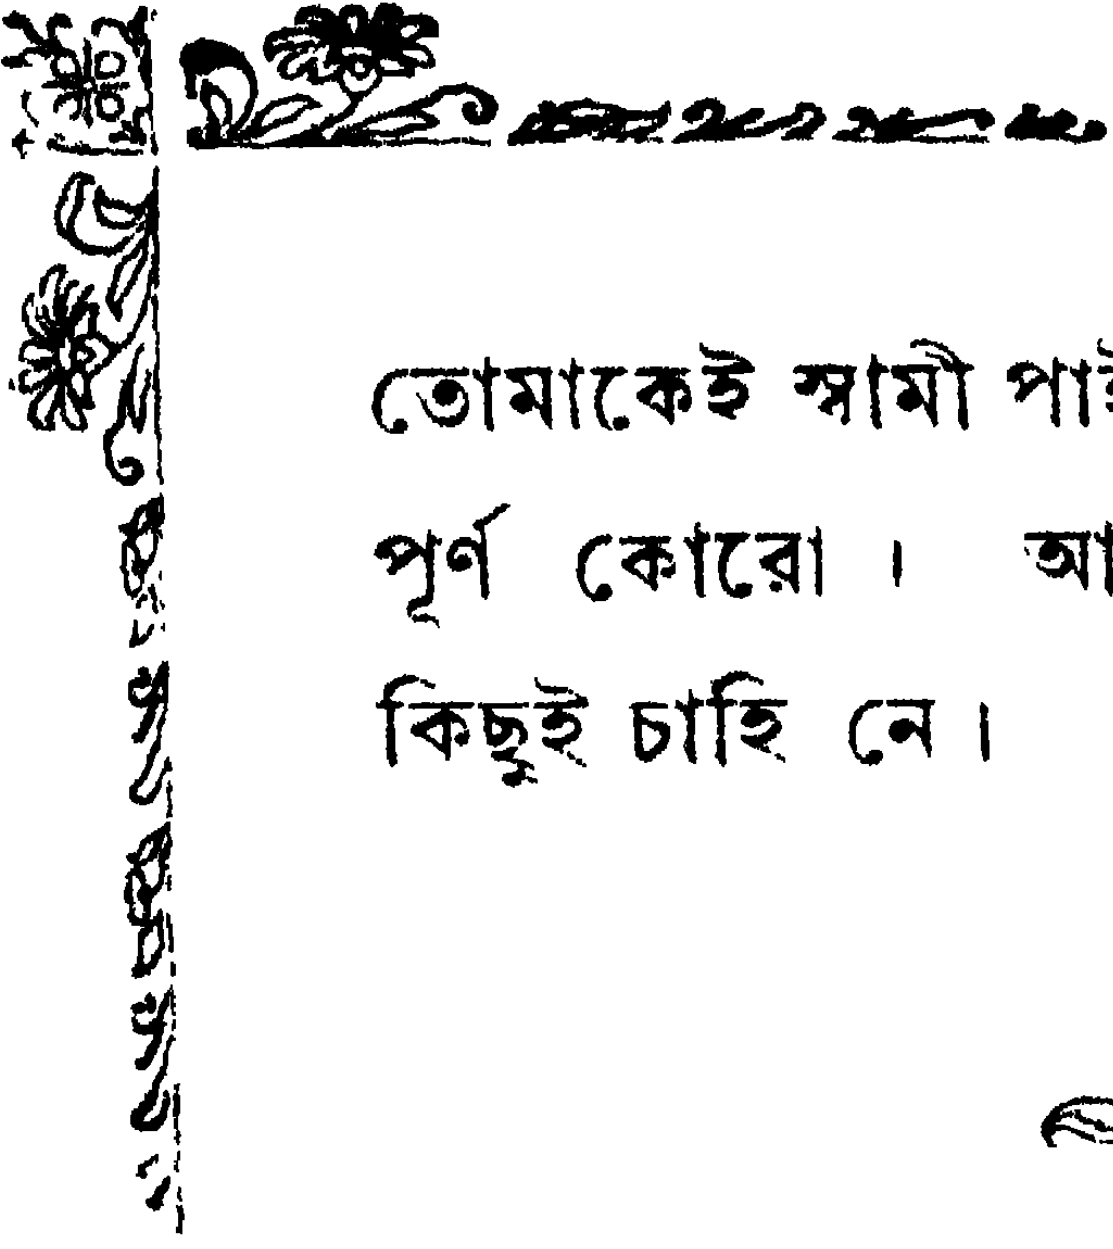 তোমাকেই স্বামী
পূর্ণ কোরো ।
কিছুই চাহি নে ।